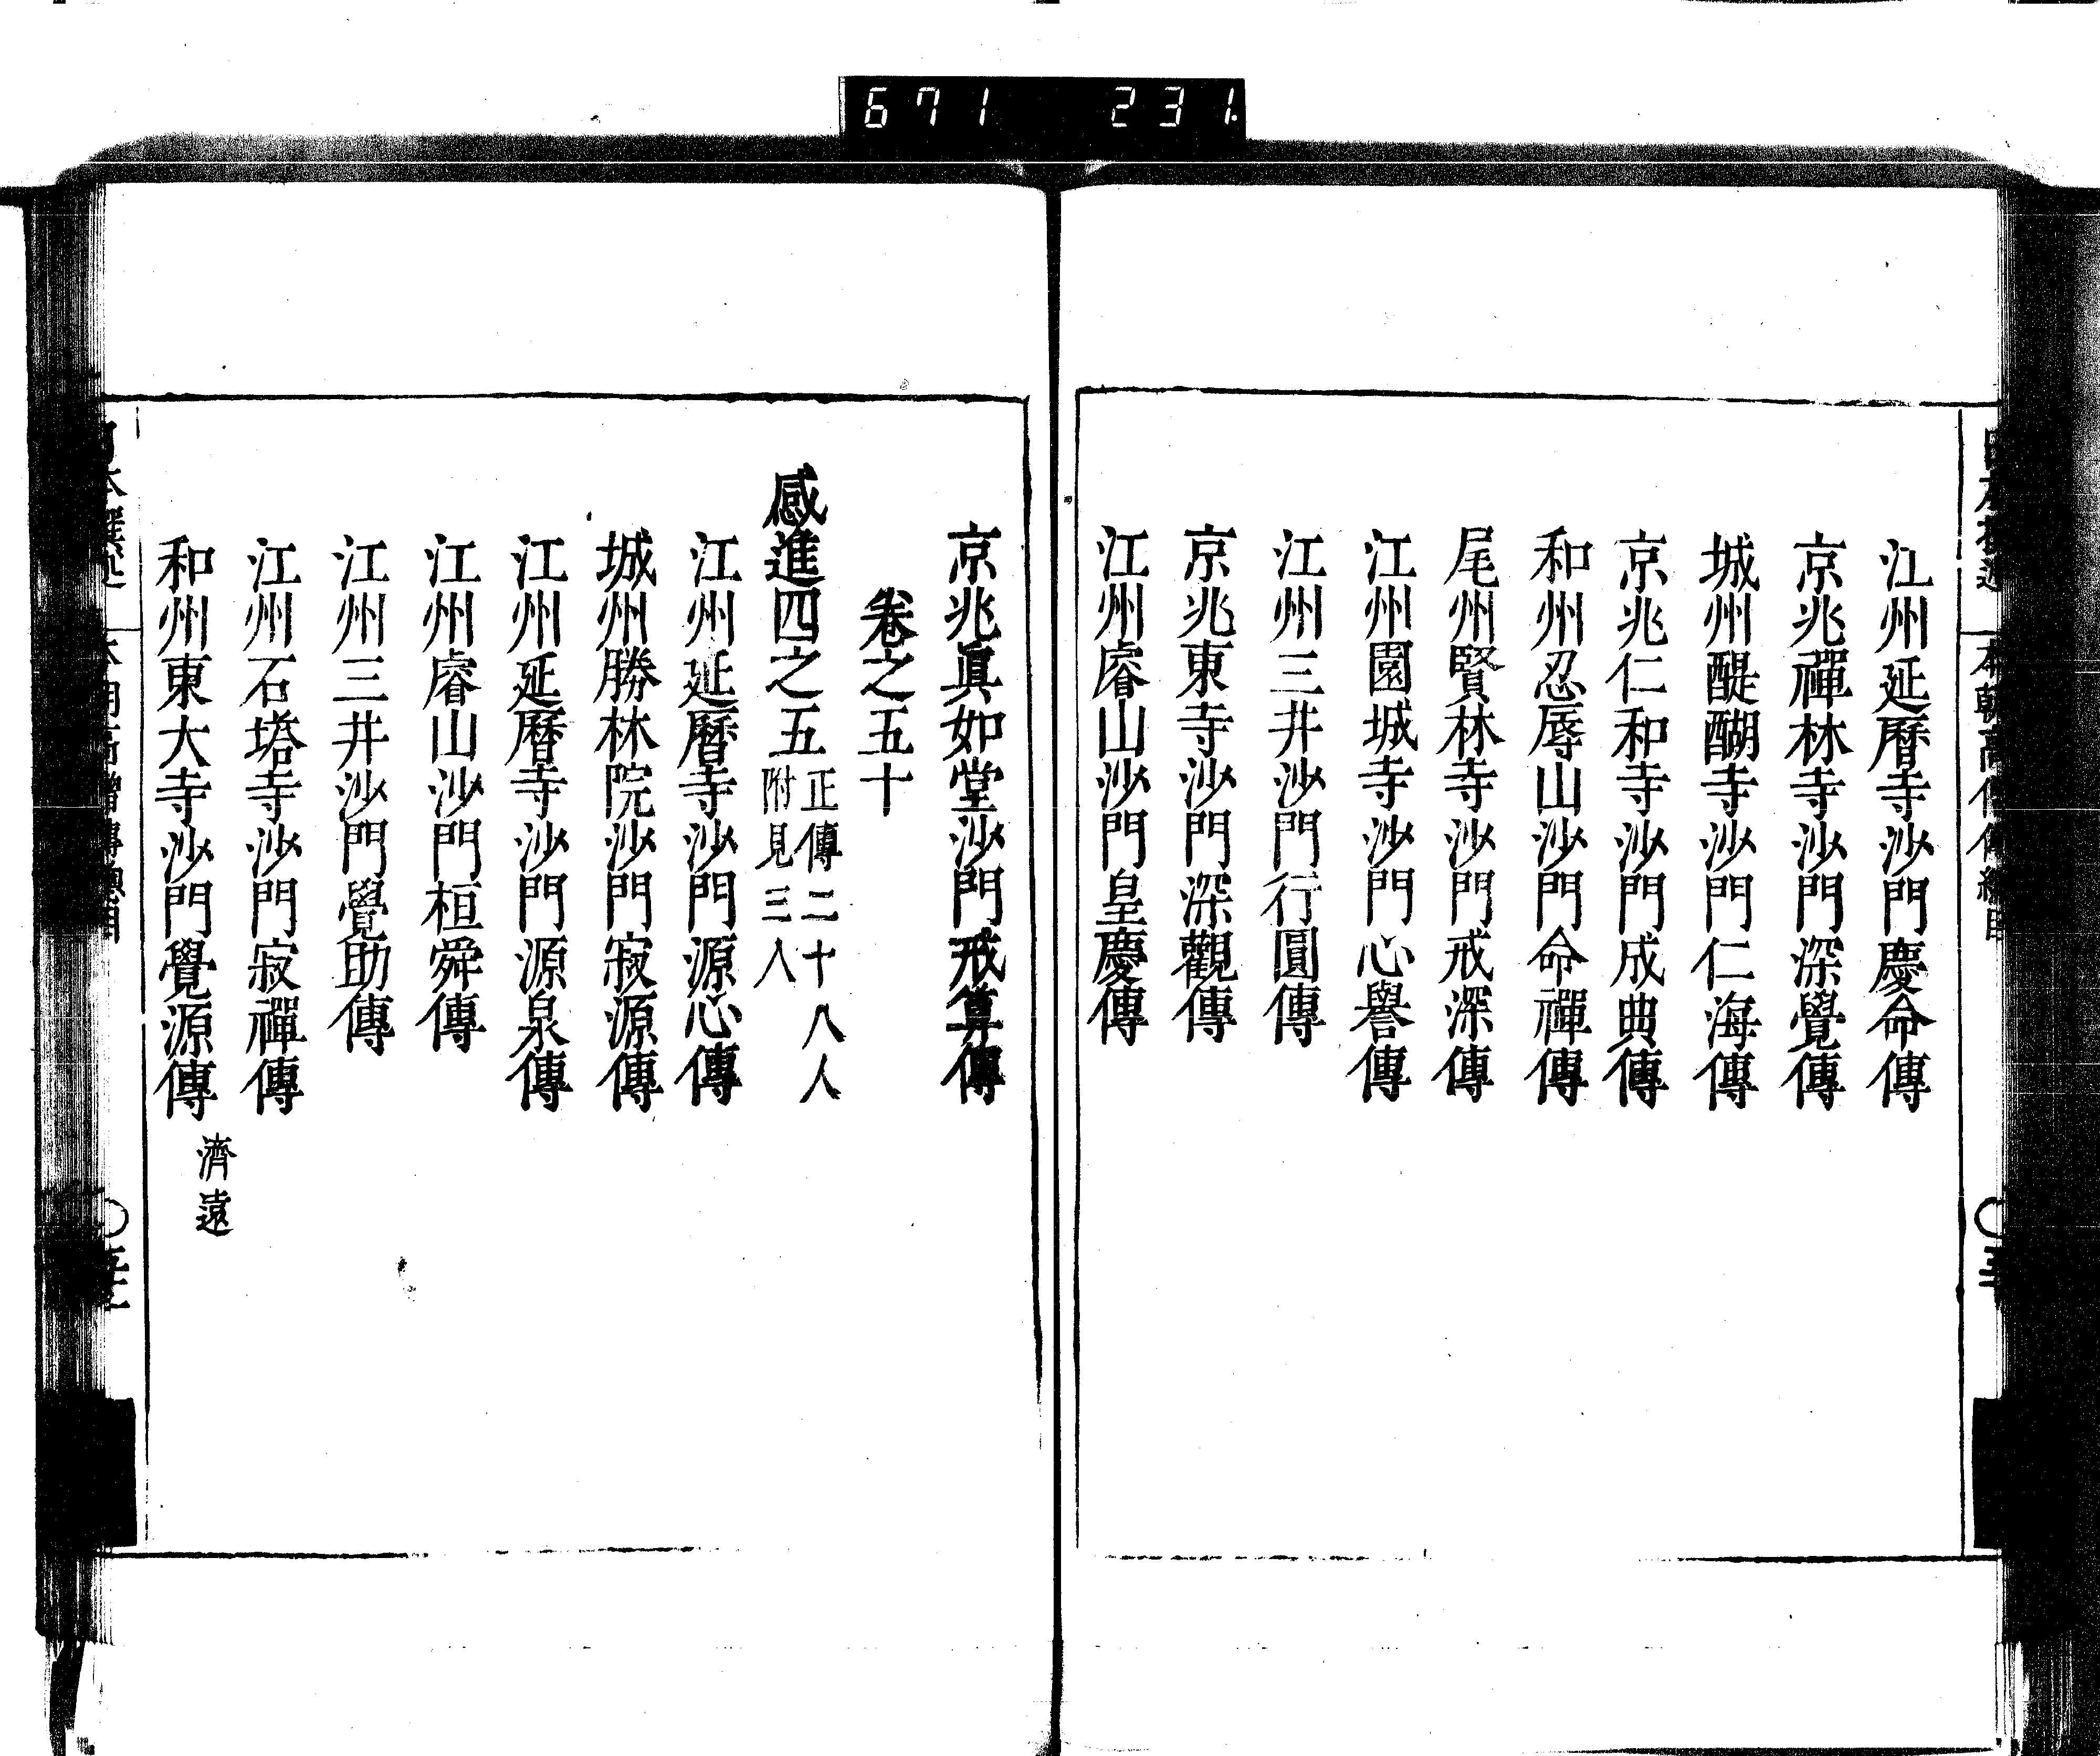 671 231.
江州延曆寺沙門慶命傳
京兆禪林寺沙門深覺傳
城州醍醐寺沙門仁海傳
京兆仁和寺沙門成典傳
和州忍辱山沙門命禪傳
尾州賢林寺沙門戒深傳
江州園城寺沙門心譽傳
江州三井沙門行圓傳
京兆東寺沙門深觀傳
江州睿山沙門皇慶傳
京兆眞如堂沙門戒算傳
卷之五十
感進四之五
正傳二十八人
附見三人
江州延曆寺沙門源心傳
城州勝林院沙門寂源傳
江州延曆寺沙門源泉傳
江州睿山沙門桓舜傳
江州三井沙門覺助傳
江州石塔寺沙門寂禪傳
和州東大寺沙門覺源傳
濟遠